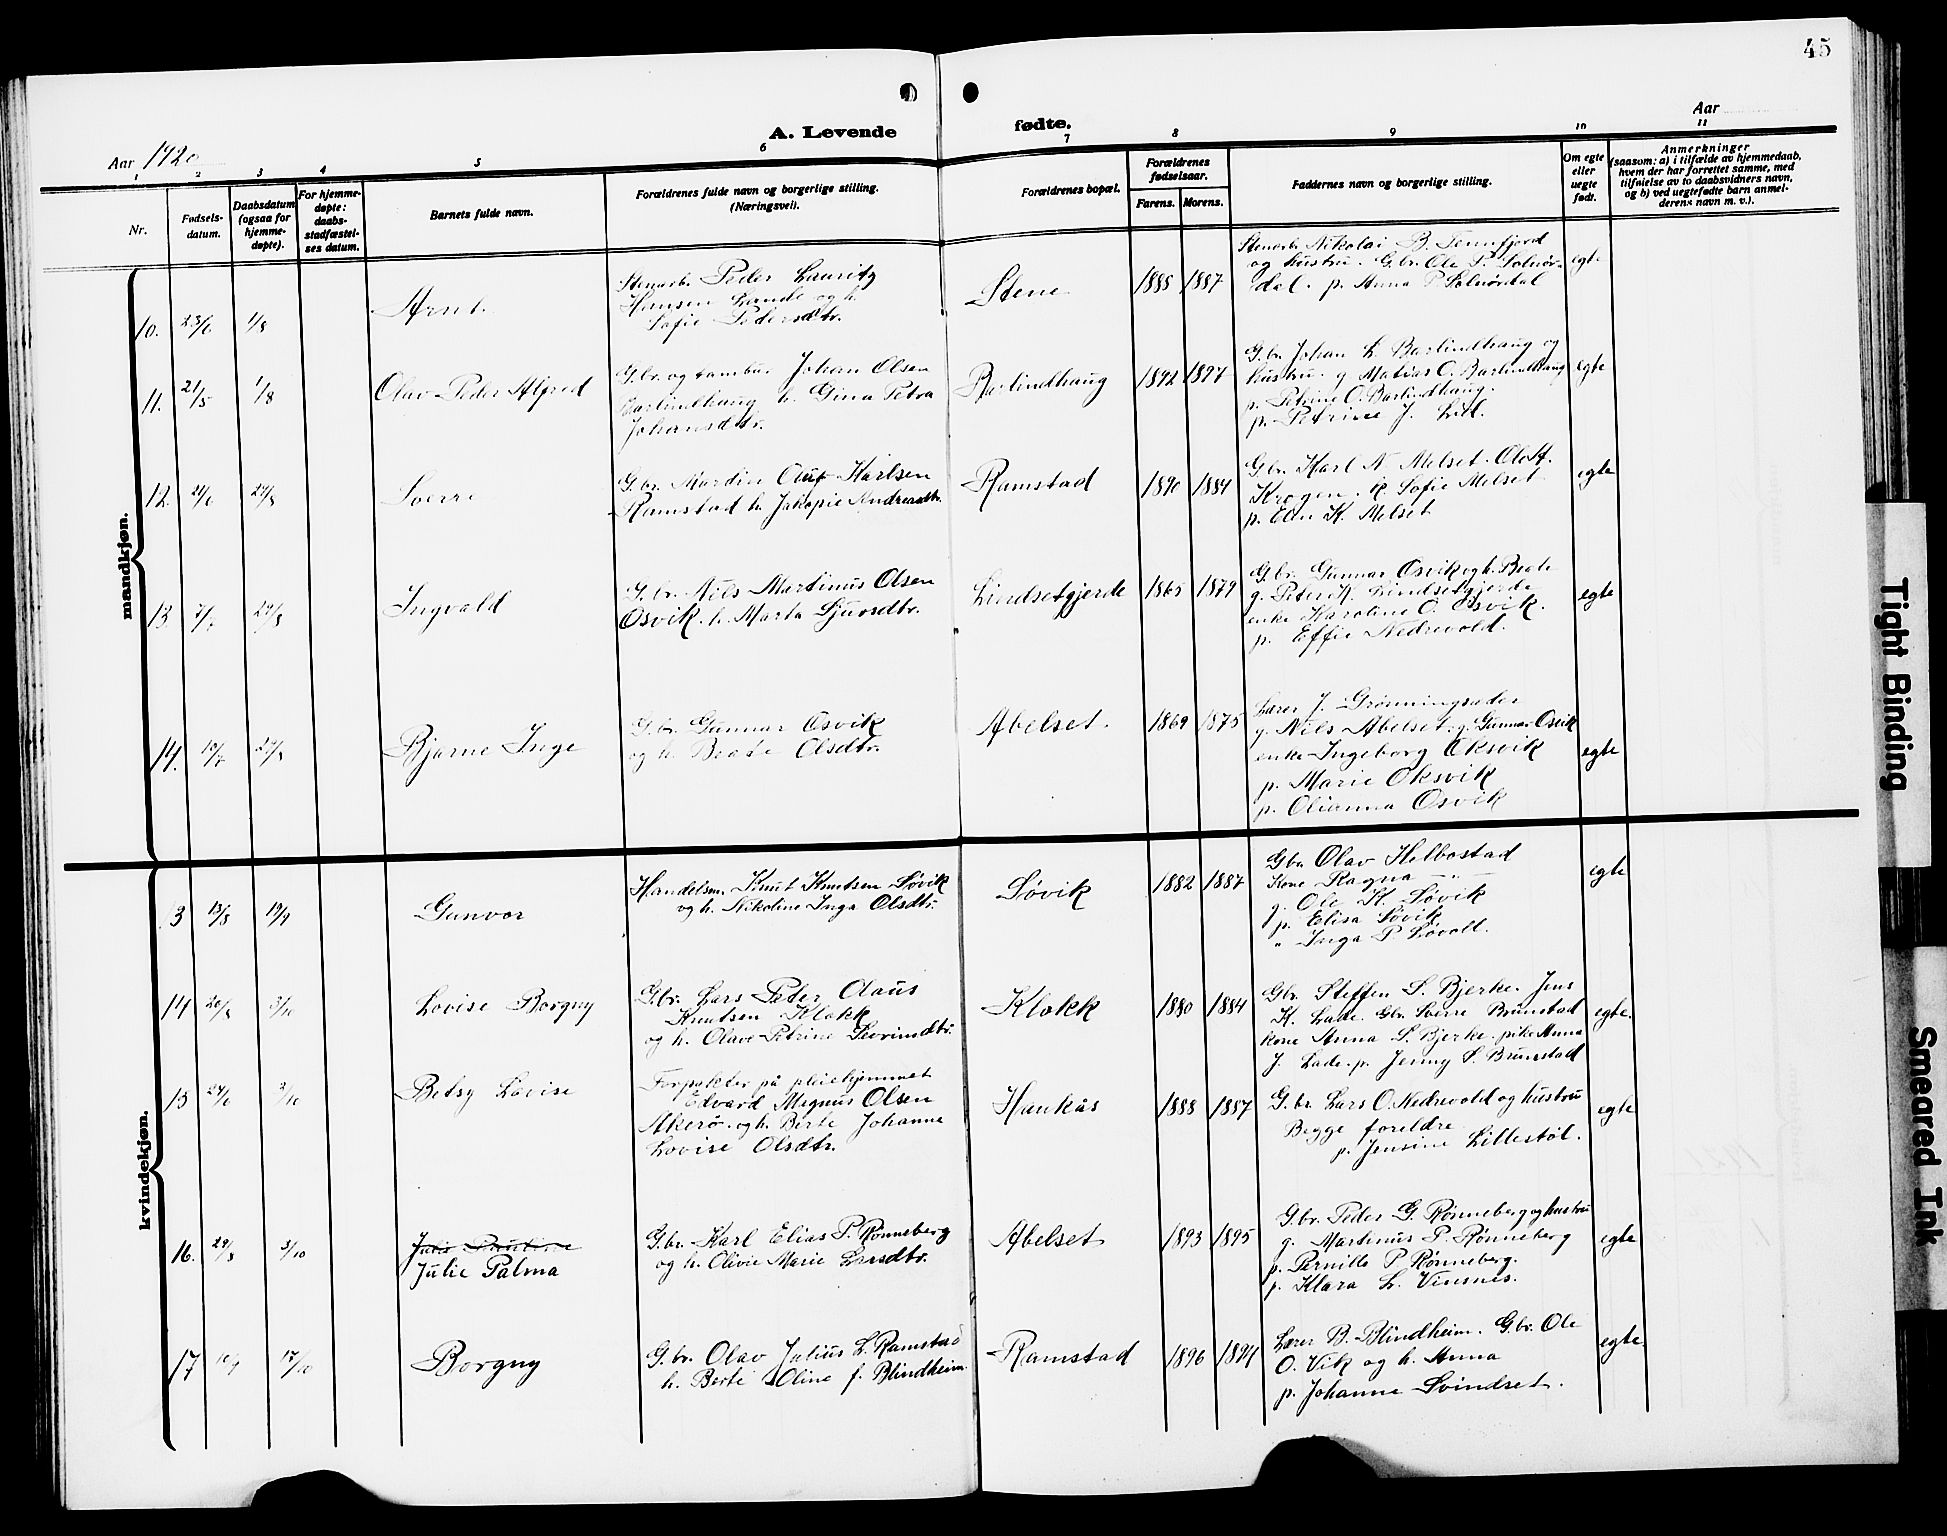 45
A. Levende fødte.
Aar 1920
Aar
1 2 3 4 5 6 7 8 9 10 11
Nr.
Fødsels-
datum.
Daabsdatum
(ogsaa for
hjemme-
døpte).
For hjemme-
døpte:
daabs-
stadfæstel-
ses datum.
Barnets fulde navn.
Forældrenes fulde navn og borgerlige stilling.
(Næringsvei).
Forældrenes bopæl.
Forældrenes
fødselsaar.
Farens. Morens.
Faddernes navn og borgerlige stilling.
Om egte
eller
uegte
født.
Anmerkninger
(saasom: a) i tilfælde av hjemmedaab,
hvem der har forrettet samme, med
tilføielse av to daabsvidners navn,
og b) ved uegtefødte barn anmel-
derens navn m. v.).
mandkjøn.
10. 23/6 1/8
Arnt
Stenarb. Peder Lauritz
Hansen Lande og h.
Sofie Pedersdtr.
Stene
1885 1887
Stenarb. Nikolai B. Tennfjord
og hustru. G.br. Ole P. Solnør-
dal. p. Anna P. Solnørdal
egte
11. 21/5 1/8
Olav Peder Alfred
G.br. og tambur Johan Olsen
Barlindhaug h. Gina Petra
Johansdtr.
Barlindhaug
1892 1897
G.br. Johan L. Barlindhaug og
hustru. g. Matias O. Barlindhaug
p. Petrine O. Barlindhaug.
p. Petrine J. Lid.
egte
12. 24/6 29/8
Sverre
G.br. Martin Olaf Karlsen
Ramstad h. Jakopie Andreasdtr.
Ramstad
1890 1884
G.br. Karl N. Melset. Ole A.
Krogen. k. Sofie Melset
p. Elen K. Melset
egte
13. 7/7 29/8
Ingvald
G.br. Nils Martinus Olsen
Osvik. h. Marta Sjursdtr.
Lindsetgjerde
1865 1879
G.br. Gunnar Osvik og h. Beate
g. Peter K. Lindsetgjerde
enke Karoline O. Osvik.
p. Effie Nedrevold.
egte
14. 19/7 29/8
Bjarne Inge
G.br. Gunnar Osvik
og h. Beate Olsdtr.
Abelset.
1869 1875
Lærer J. Grønningsæter
g. Nils Abelset. g. Gunnar Osvik
enke Ingeborg Oksvik
p. Marie Oksvik
p. Olianna Osvik
egte
kvindekjøn.
13 13/8 19/9
Gunvor
Handelsm. Knut Knutsen Søvik
og h. Nikoline Inga Olsdtr.
Søvik
1882 1887
Gbr. Olav Helbostad
Kone Ragna — " —
g. Ole K. Søvik
p. Elisa Søvik
" Inga P. Løvoll.
egte
14 20/8 3/10
Lovise Borgny
G.br. Lars Peter Olaus
Knutsen Klokk
og h. Olave Petrine Sevrindtr.
Klokk
1880 1884
Gbr. Steffen S. Bjerke. Jens
K. Lade. Gbr. Sverre Brunstad
kone Anna S. Bjerke. pike Anna
J. Lade. p. Jenny S. Brunstad
egte.
15 24/6 3/10
Betsy Lovise
Forpakter på pleiehjemmet
Edvard Magnus Olsen
Akerø. og h. Berte Johanne
Lovise Olsdtr.
Haukås
1888 1887
G.br. Lars O. Nedrevold og hustru
Begge foreldre
p. Jensine Lillestøl.
egte
16. 29/8 3/10
Julie Pauline
Julie Palma
G.br. Karl Elias P. Rønneberg
og h. Olivie Marie Larsdtr.
Abelset
1893 1895
G.br. Peder G. Rønneberg og hustru
g. Martinus P. Rønneberg
p. Pernille P. Rønneberg.
p. Klara L. Vinsnes.
egte
17 10/9 17/10
Borgny
G.br. Olav Julius L. Ramstad
h. Berte Oline f. Blindheim
Ramstad
1896 1894
Lærer B. Blindheim. G.br. Ole
O. Vik og h. Anna
p. Johanne Svindset.
egte.
Tight Binding
Smeared Ink